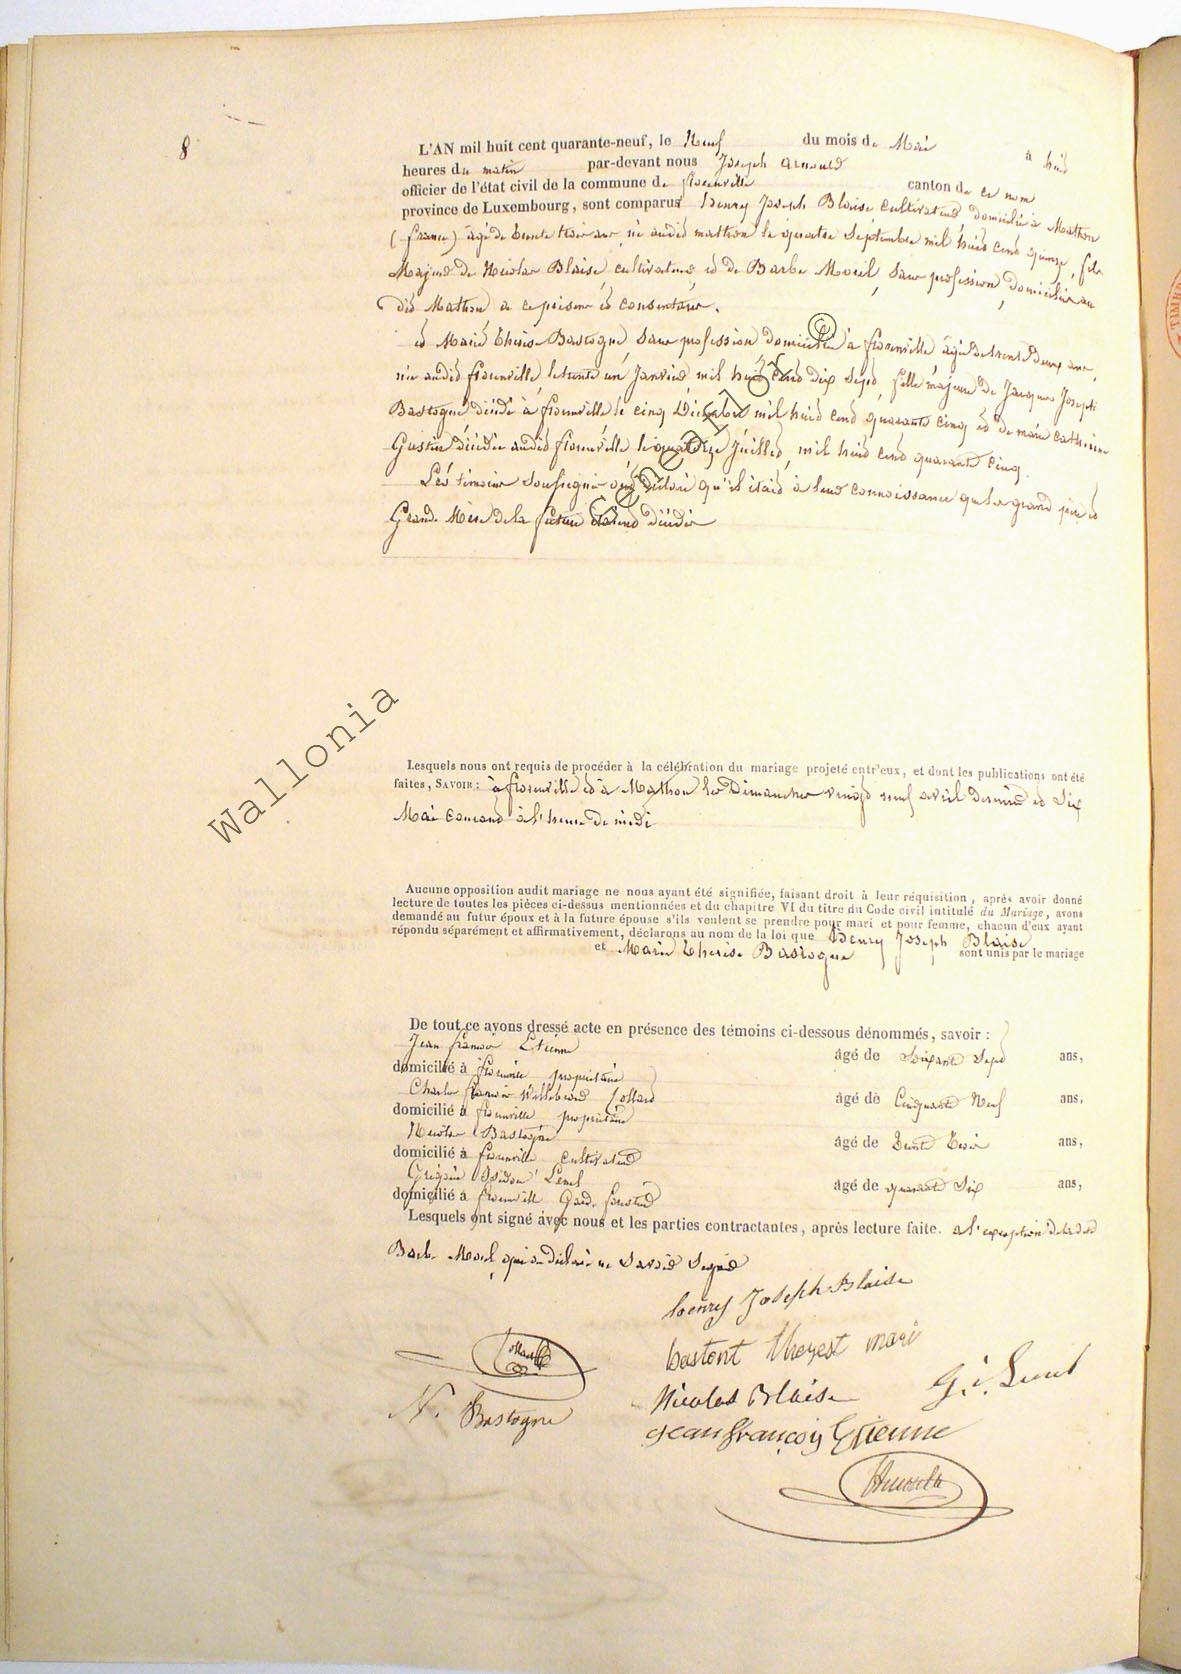 8
L'AN mil huit cent quarante-neuf, le Neuf du mois de Mai à huit
heures du matin par-devant nous Joseph Arnould
officier de l'état civil de la commune de florenville canton de ce nom
province de Luxembourg, sont comparus Henry Joseph Blaise cultivateur domicilié à Mathon
(france) agé de trente trois ans, né audit mathon le quatre Septembre mil huit cent quinze, fils
Majeur de Nicolas Blaise, cultivateur et de Barbe Moril, sans profession, domiciliés au
dit Mathon a ce présens et consentans.
et Marie Thérèse Bastogne sans profession domiciliée à florenville âgée de trente deux ans,
née audit florenville, le trente un Janvier mil huit cent dix sept, fille majeure de Jacques Joseph
Bastogne décédé à florenville le cinq Décembre mil huit cent quarante cinq et de marie catherine
Gustin décédée audit florenville le quatorze Juillet, mil huit cent quarante cinq.
Les témoins soussignés ont déclaré qu'il était à leur connaissance que les grand père et
Grande Mère de la future étaient décédés
Wallonia
Genearlor ©
Lesquels nous ont requis de procéder à la célébration du mariage projeté entr'eux, et dont les publications ont été
faites, SAVOIR: à florenville et à Mathon les Dimanches vingt neuf avril dernier et Six
Mai courant à l'heure de midi
Aucune opposition audit mariage ne nous ayant été signifiée, faisant droit à leur réquisition, après avoir donné
lecture de toutes les pièces ci-dessus mentionnées et du chapitre VI du titre du Code civil intitulé du Mariage, avons
demandé au futur époux et à la future épouse s'ils veulent se prendre pour mari et pour femme, chacun d'eux ayant
répondu séparément et affirmativement, déclarons au nom de la loi que Henry Joseph Blaise
et Marie Thérèse Bastogne sont unis par le mariage
De tout ce avons dressé acte en présence des témoins ci-dessous dénommés, savoir :
Jean françois Etienne âgé de Soixante Sept ans,
domicilié à florenville propriétaire
Charles françois Willebrord Collard âgé de Cinquante Neuf ans,
domicilié à florenville propriétaire
Nicolas Bastogne âgé de Trente Trois ans,
domicilié à florenville cultivateur
Grégoire Isidore Lenel âgé de quarante Six ans,
domicilié à florenville Garde forestier
Lesquels ont signé avec nous et les parties contractantes, après lecture faite. a l'exception de la dite
Barbe Moril qui a déclaré ne savoir signer
henry Joseph Blaise
Collard
bastont therest mari
Nicolas Blaise
G. i. Lenel
N. Bastogne
jean françois Etienne
Arnould
TIMBRE